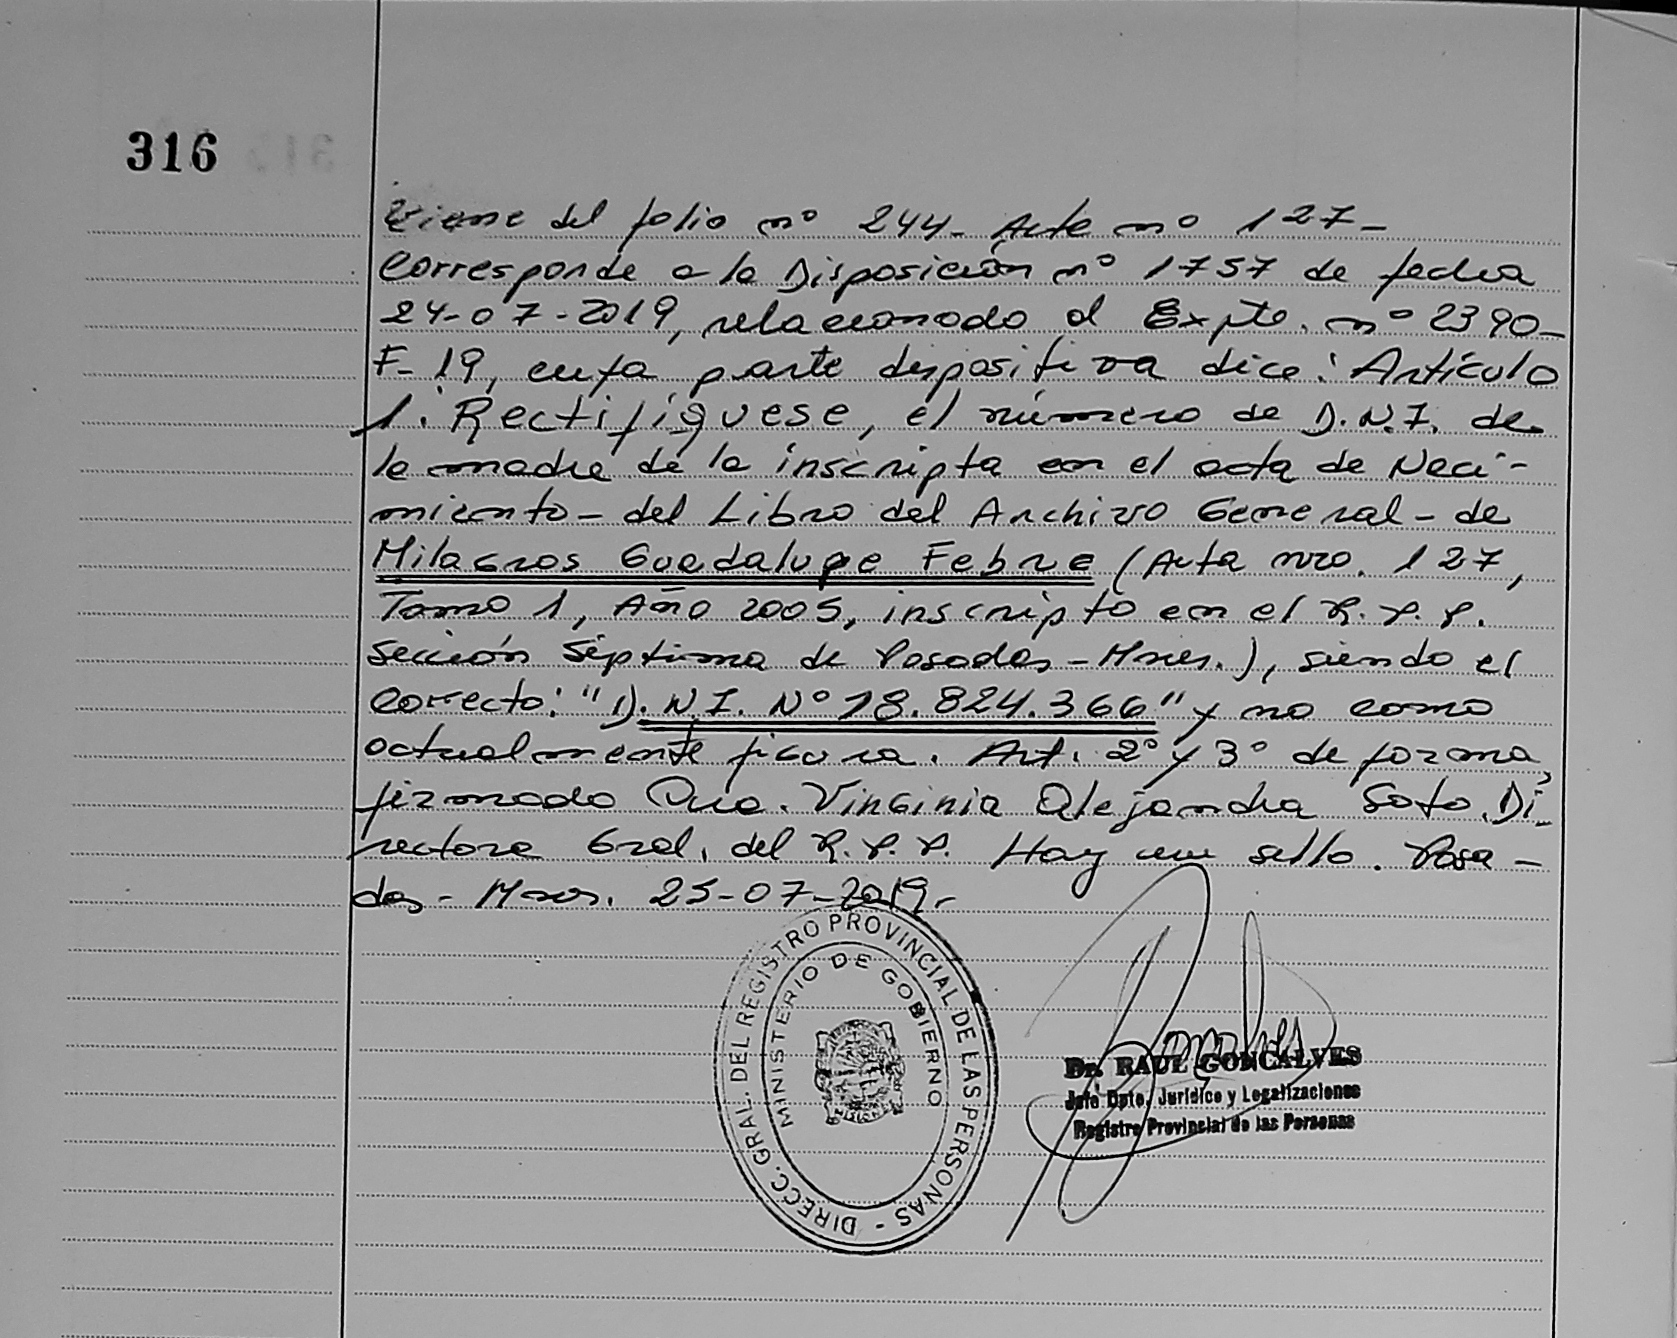 316
Viene del folio nº 244- Acta nº 127-
Corresponde a la Disposición nº 1757 de fecha
24-07-2019, relacionado al Expte. nº 2390-
F-19, cuya parte dispositiva dice: Artículo
1: Rectifíquese, el número de D.N.I. de
la madre de la inscripta en el acta de Naci-
miento- del Libro del Archivo General- de
Milagros Guadalupe Febre (Acta nro. 127,
Tomo 1, Año 2005, inscripto en el R.P.P.
Sección Séptima de Posadas-Mnes.), siendo el
correcto: "D.N.I. Nº 18.824.366" y no como
actualmente figura. Art. 2º y 3º de forma,
firmado Dra. Virginia Alejandra Soto. Di-
rectora Gral. del R.P.P. Hay un sello. Posa-
das- Mnes. 25-07-2019.-
DIRECC. GRAL. DEL REGISTRO PROVINCIAL DE LAS PERSONAS -
MINISTERIO DE GOBIERNO
MISIONES
Dr. RAUL GONCALVES
Jefe Dpto. Jurídico y Legalizaciones
Registro Provincial de las Personas